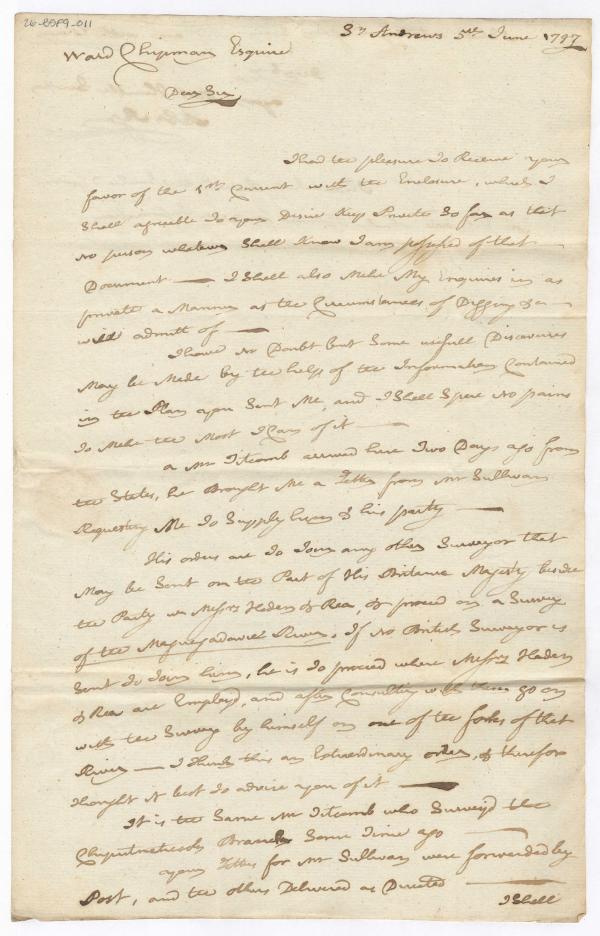 26-8589-011
St Andrews 5th June 1797
Ward Chipman Esquire
Dear Sir
I had the pleasure to Receive your
favor of the 1st Current with the Enclosure, which I
Shall agreeable to your Desire Keep Private So far as that
no person whatever Shall Know I am possessed of that
Document — I Shall also Make My Enquires in as
private a Manner as the Circumstances of Digging &c
will admitt of —
I have no Doubt but Some usefull Discoveries
May be Made by the help of the Information Contained
in the Plan you Sent Me, and I Shall Spare no pains
to Make the Most I Can of it —
a Mr Titcomb arrived here Two Days ago from
the States, he Brought Me a Letter from Mr Sullivan
Requesting Me to Supply him & his party —
His orders are to Join any other Surveyor that
May be Sent on the Part of His Britanic Majesty beside
the Party w Messrs Haden & Rea, & proceed on a Survey
of the Maguagadavic River. If No British Surveyor is
Sent to Join him, he is to proceed where Messrs Haden
& Rea are Employd, and after Consulting with them go on
with the Survey by himself on one of the forks of that
River — I think this an Extraordinary order, & therefore
thought it best to advise you of it —
It is the Same Mr Titcomb who Survey'd the
Chiputneticook Branch Some Time ago —
your Letters for Mr Sullivan were forwarded by
Post, and the others Delivered as Directed —
I Shall